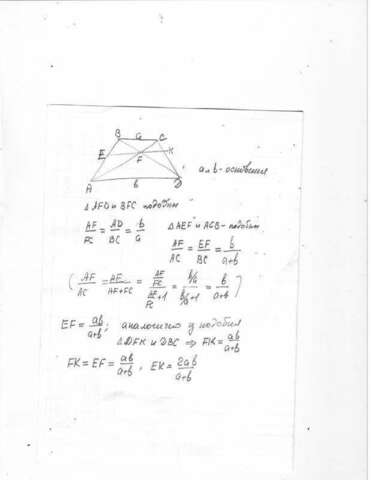 B a C
E F K
A b D
a и b - основания
△ AFD и BFC подобны
AF/FC = AD/BC = b/a
△ AEF и ACB - подобны
AF/AC = EF/BC = b/a+b
( AF/AC = AF/AF+FC = AF/FC / AF/FC + 1 = b/a / b/a + 1 = b/a+b )
EF = ab/a+b ; аналогично у подобия
△ DFK и DBC ⇒ FK = ab/a+b
FK = EF = ab/a+b ; EK = 2ab/a+b